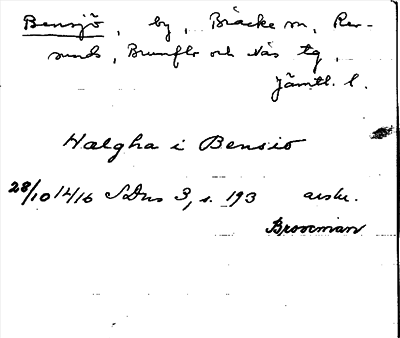 Bensjö, by, Bräcke sn, Rev-
sunds, Brunflo och Näs tg,
Jämtl. l.
Halgha i Bensio
28/10 1416 SDns 3, s. 193 avskr.
Brooman